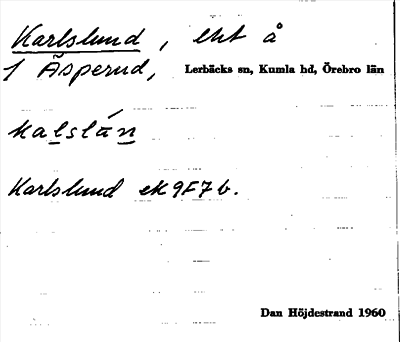 Karlslund, lht å
1 Äsperud, Lerbäcks sn, Kumla hd, Örebro län
kalslán
Karlslund ek 9F7b.
Dan Höjdestrand 1960